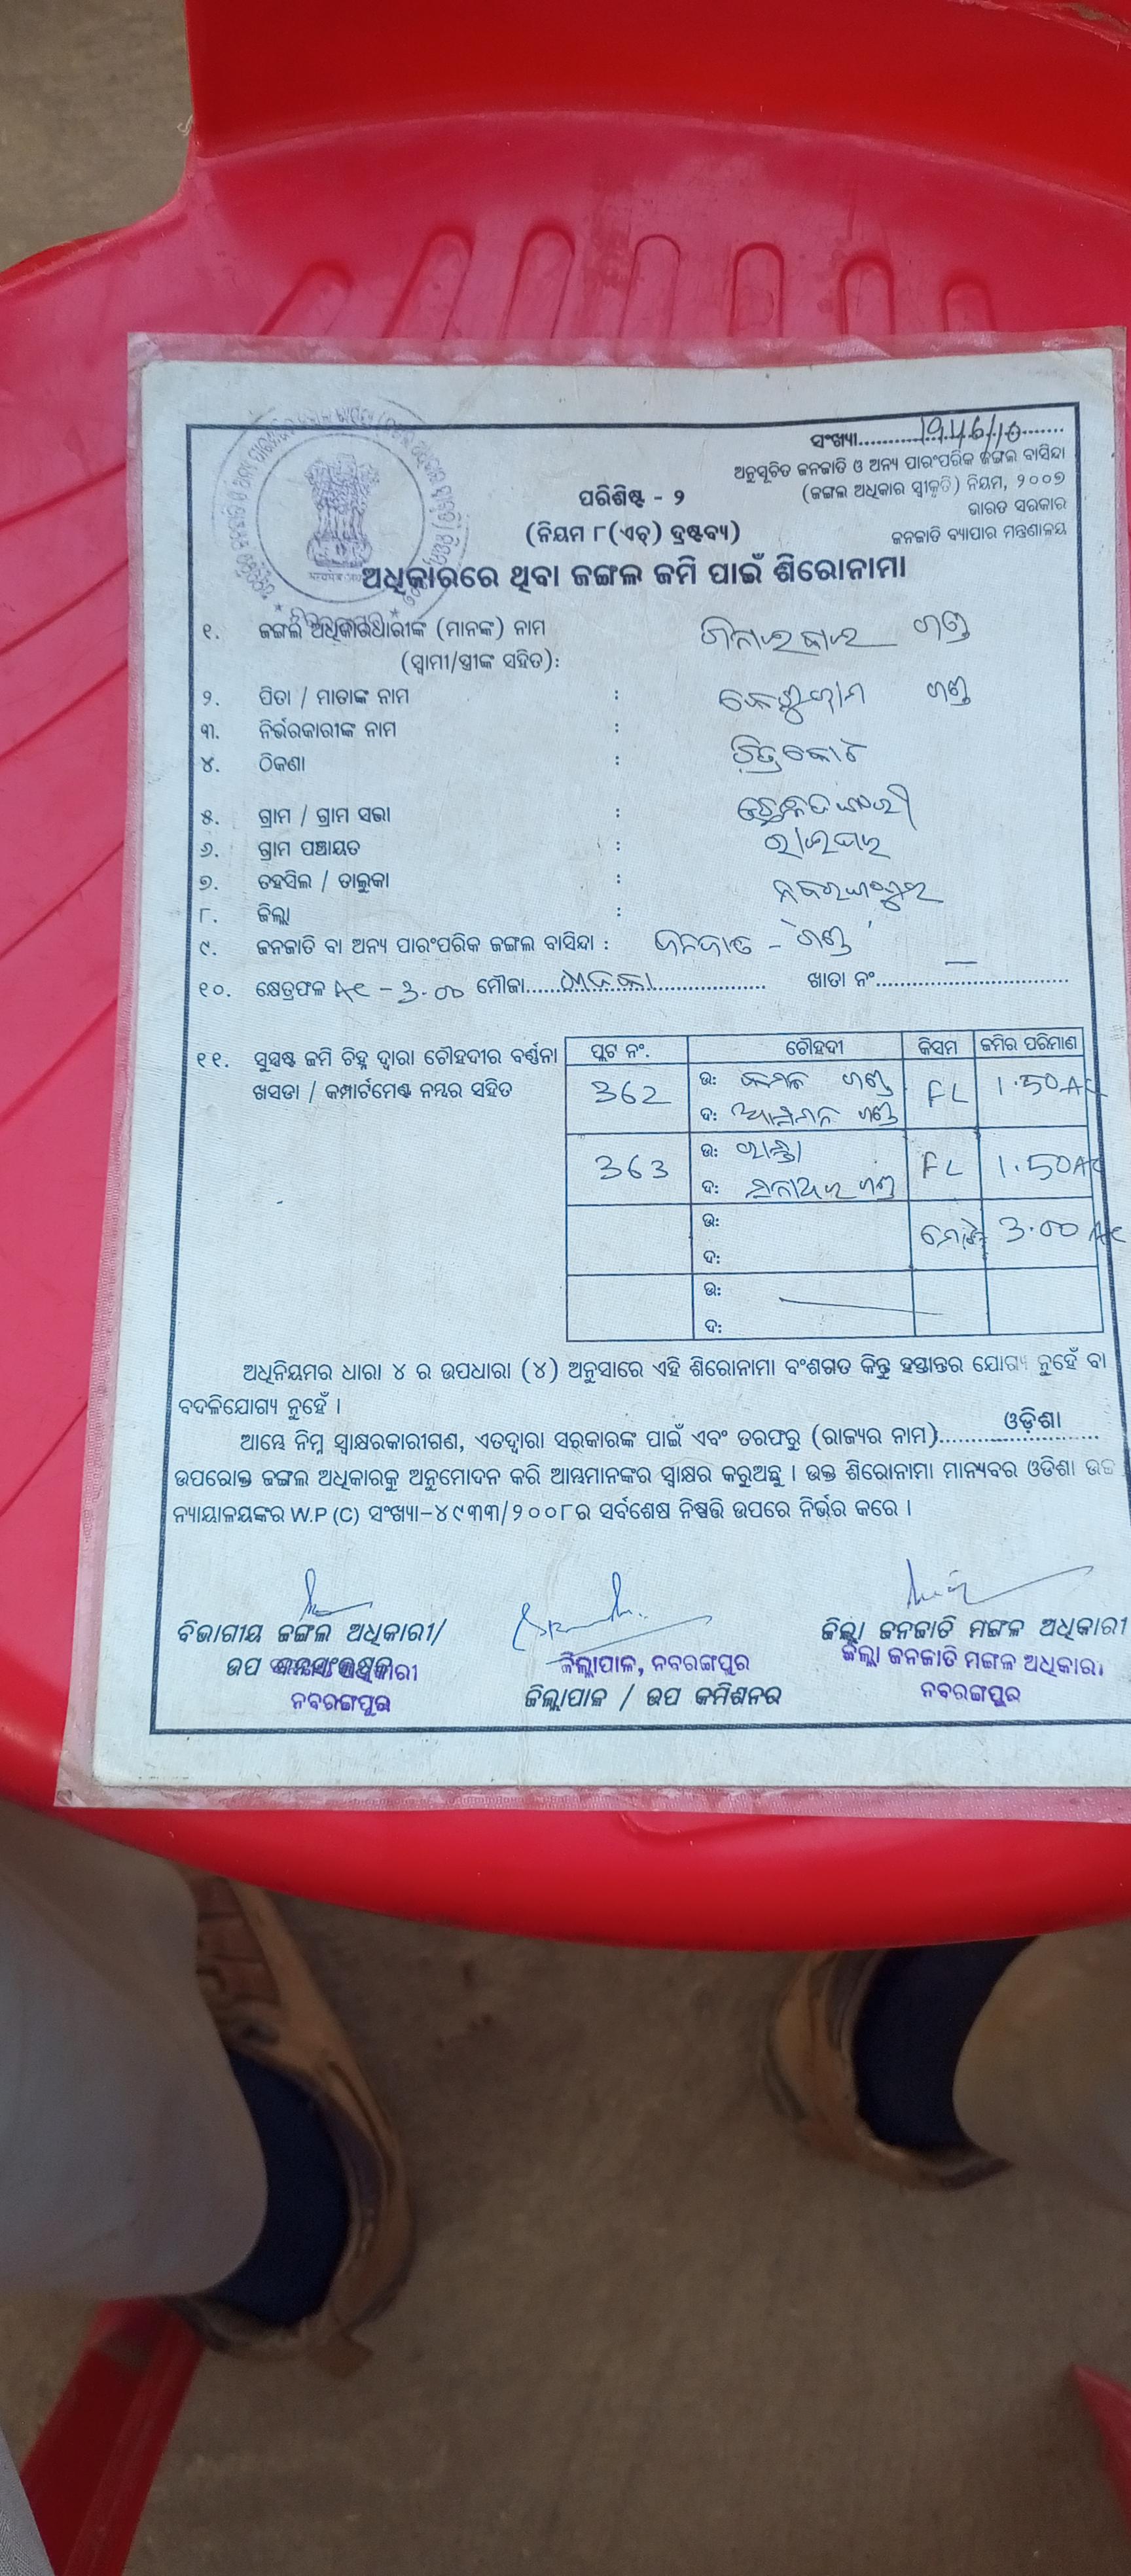 ସଂଖ୍ୟା......1946/10......
ଅନୁସୂଚିତ ଜନଜାତି ଓ ଅନ୍ୟ ପାରଂପରିକ ଜଙ୍ଗଲ ବାସିନ୍ଦା
(ଜଙ୍ଗଲ ଅଧିକାର ସ୍ୱୀକୃତି) ନିୟମ, ୨୦୦୭
ଭାରତ ସରକାର
ଜନଜାତି ବ୍ୟାପାର ମନ୍ତ୍ରଣାଳୟ
ପରିଶିଷ୍ଟ - ୨
(ନିୟମ ୮(ଏଚ୍) ଦ୍ରଷ୍ଟବ୍ୟ)
ଅଧିକାରରେ ଥିବା ଜଙ୍ଗଲ ଜମି ପାଇଁ ଶିରୋନାମା
୧. ଜଙ୍ଗଲ ଅଧିକାରଧାରୀଙ୍କ (ମାନଙ୍କ) ନାମ ଗଣ୍ଡ
(ସ୍ୱାମୀ/ସ୍ତ୍ରୀଙ୍କ ସହିତ):
୨. ପିତା / ମାତାଙ୍କ ନାମ : ଗଣ୍ଡ
୩. ନିର୍ଭରକାରୀଙ୍କ ନାମ :
୪. ଠିକଣା : ଚିତ୍ରକୋଟ
୫. ଗ୍ରାମ / ଗ୍ରାମ ସଭା :
୬. ଗ୍ରାମ ପଞ୍ଚାୟତ : ରାଇଘର
୭. ତହସିଲ / ତାଲୁକା :
୮. ଜିଲ୍ଲା : ନବରଙ୍ଗପୁର
୯. ଜନଜାତି ବା ଅନ୍ୟ ପାରଂପରିକ ଜଙ୍ଗଲ ବାସିନ୍ଦା : ଜନଜାତି - ଗଣ୍ଡ
୧୦. କ୍ଷେତ୍ରଫଳ AC - 3.00 ମୌଜା...... ଖାତା ନଂ......
୧୧. ସୁସ୍ପଷ୍ଟ ଜମି ଚିହ୍ନ ଦ୍ୱାରା ଚୌହଦୀର ବର୍ଣ୍ଣନା
ଖସଡା / କମ୍ପାର୍ଟମେଣ୍ଟ ନମ୍ବର ସହିତ
ପ୍ଲଟ ନଂ. ଚୌହଦୀ କିସମ ଜମିର ପରିମାଣ
362 ଉ: ଗଣ୍ଡ FL 1.50 AC
ଦ: ଗଣ୍ଡ
363 ଉ: ରାସ୍ତା FL 1.50 AC
ଦ: ଗଣ୍ଡ
ଉ: ମୋଟ 3.00 AC
ଦ:
ଉ:
ଦ:
ଅଧିନିୟମର ଧାରା ୪ ର ଉପଧାରା (୪) ଅନୁସାରେ ଏହି ଶିରୋନାମା ବଂଶଗତ କିନ୍ତୁ ହସ୍ତାନ୍ତର ଯୋଗ୍ୟ ନୁହେଁ ବା
ବଦଳିଯୋଗ୍ୟ ନୁହେଁ ।
ଆମ୍ଭେ ନିମ୍ନ ସ୍ୱାକ୍ଷରକାରୀଗଣ, ଏତଦ୍ୱାରା ସରକାରଙ୍କ ପାଇଁ ଏବଂ ତରଫରୁ (ରାଜ୍ୟର ନାମ)......ଓଡ଼ିଶା......
ଉପରୋକ୍ତ ଜଙ୍ଗଲ ଅଧିକାରକୁ ଅନୁମୋଦନ କରି ଆମ୍ଭମାନଙ୍କର ସ୍ୱାକ୍ଷର କରୁଅଛୁ । ଉକ୍ତ ଶିରୋନାମା ମାନ୍ୟବର ଓଡିଶା ଉଚ୍ଚ
ନ୍ୟାୟାଳୟଙ୍କର W.P (C) ସଂଖ୍ୟା-୪୯୩୩/୨୦୦୮ର ସର୍ବଶେଷ ନିଷ୍ପତ୍ତି ଉପରେ ନିର୍ଭର କରେ ।
ବିଭାଗୀୟ ଜଙ୍ଗଲ ଅଧିକାରୀ/
ଉପ ବନସଂରକ୍ଷକ
ନବରଙ୍ଗପୁର
ଜିଲ୍ଲାପାଳ, ନବରଙ୍ଗପୁର
ଜିଲ୍ଲାପାଳ / ଉପ କମିଶନର
ଜିଲ୍ଲା ଜନଜାତି ମଙ୍ଗଳ ଅଧିକାରୀ
ଜିଲ୍ଲା ଜନଜାତି ମଙ୍ଗଳ ଅଧିକାରୀ
ନବରଙ୍ଗପୁର